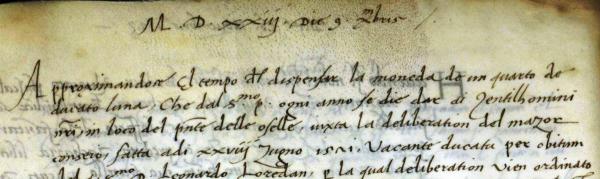 M. D. XXIIJ. Die 9 Xbris
Approximandose El tempo del dispensar la moneda de un quarto de
ducato luna, Che dal S.mo p. ogni anno se die dar di Zentilhomini
nri, in loco del pnte delle oselle, iuxta la deliberation del mazor
conseio, fatta adi XXVIIJ Zugno 1521. Vacante ducatu per obitum
Leonardo Loredan, p la qual deliberation vien ordinato